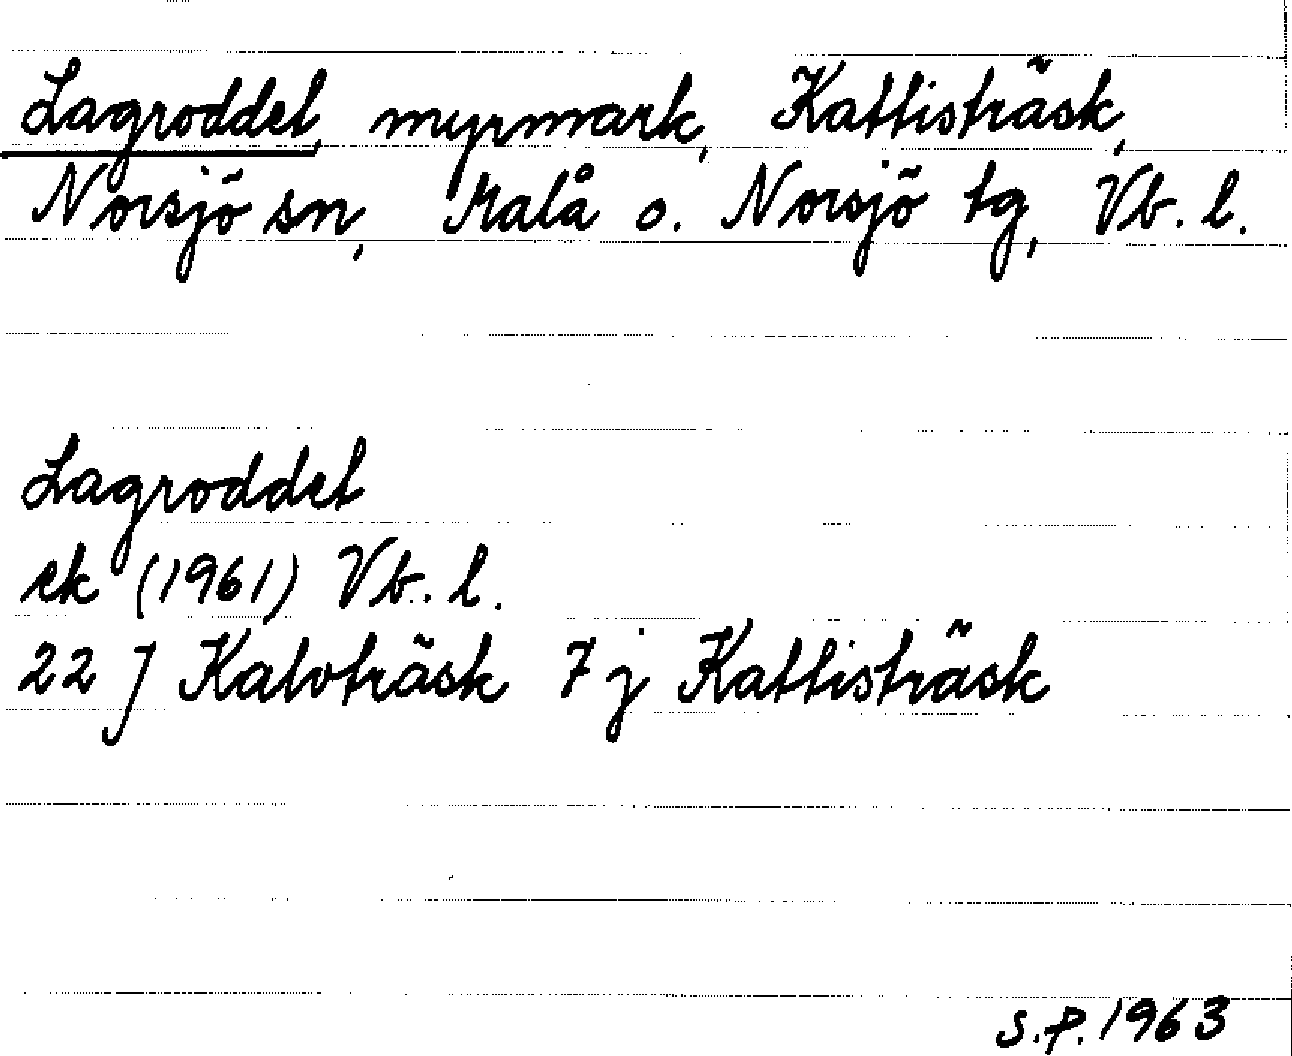 Lagroddet, myrmark, Kattisträsk,
Norsjö sn, Malå o. Norsjö tg, Vb. l.
Lagroddet
ek (1961) Vb. l.
22 J Kalvträsk 7 j Kattisträsk
S.P. 1963